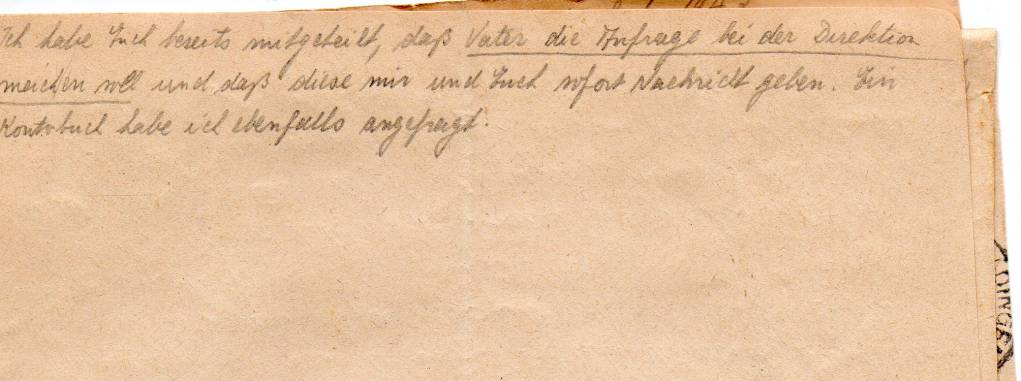 Ich habe Euch bereits mitgeteilt, daß Vater die Anfrage bei der Direktion
soll und daß diese mir und Euch sofort Nachricht geben. Ein
Kontobuch habe ich ebenfalls angefragt.
DINGEN